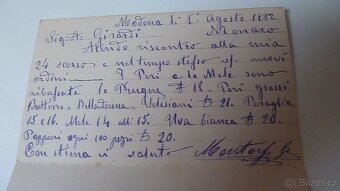 Modena li 1° Agosto 1882
Sig. Girardi Monaco
Attendo riscontro alla mia
24 scorso e nel tempo stesso sp. nuovi
ordini I Peri e le Mele sono
ribassate le Prugne a 18. Peri grossi
Buttirro. Delladonna Vdesiani 21. Peraglie
15 e 16. Mele 14 alli 15. Uva bianca 20.
Popponi ogni 100 pezzi 20.
Con stima vi saluto